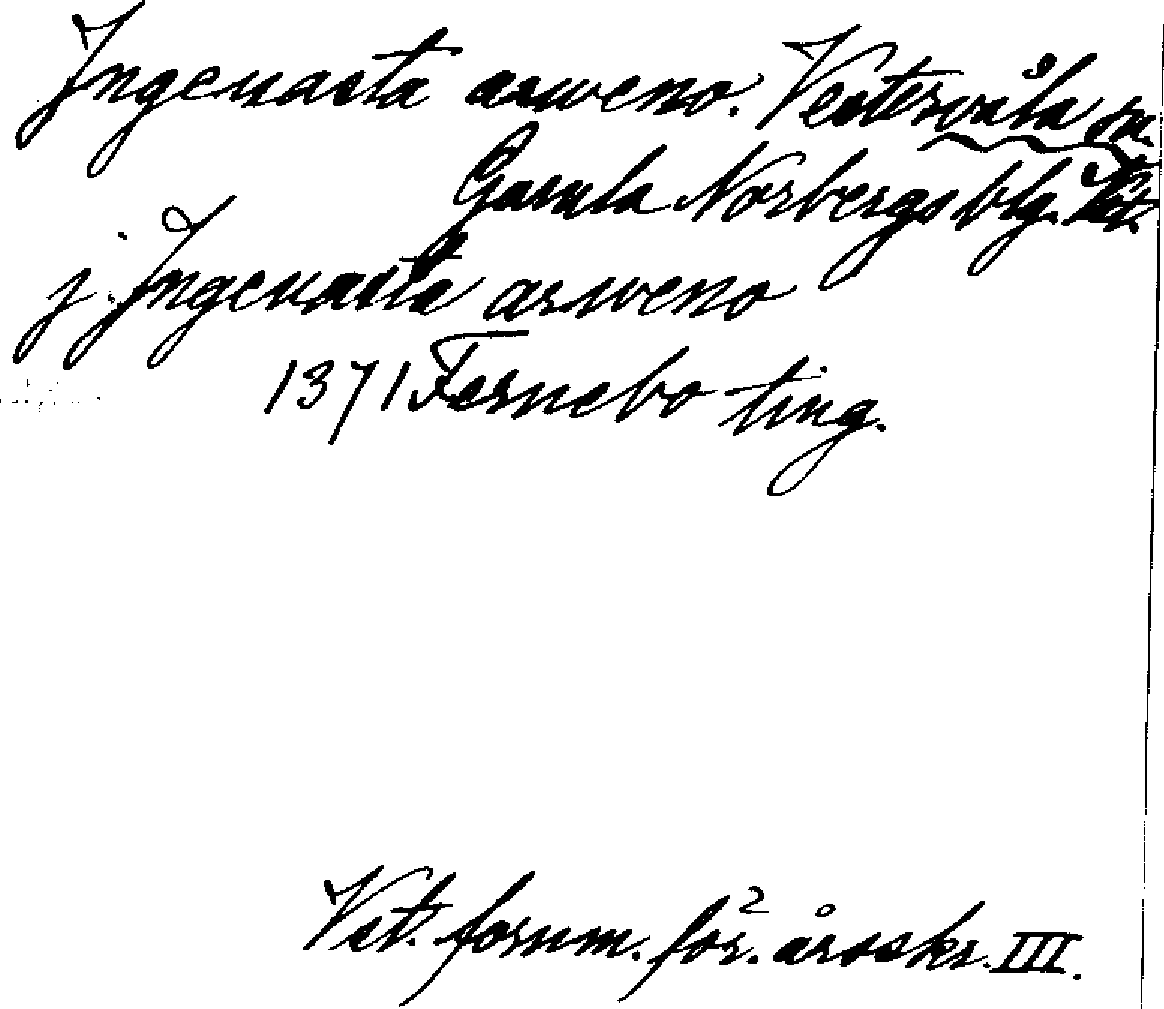 Ingeuasta arweno. Vestervåla sn.
Gamla Norbergs blg. Vst.
j. Ingeuasta arweno
1371 Fernebo ting.
Vst. fornm. för:s årsskr. III.